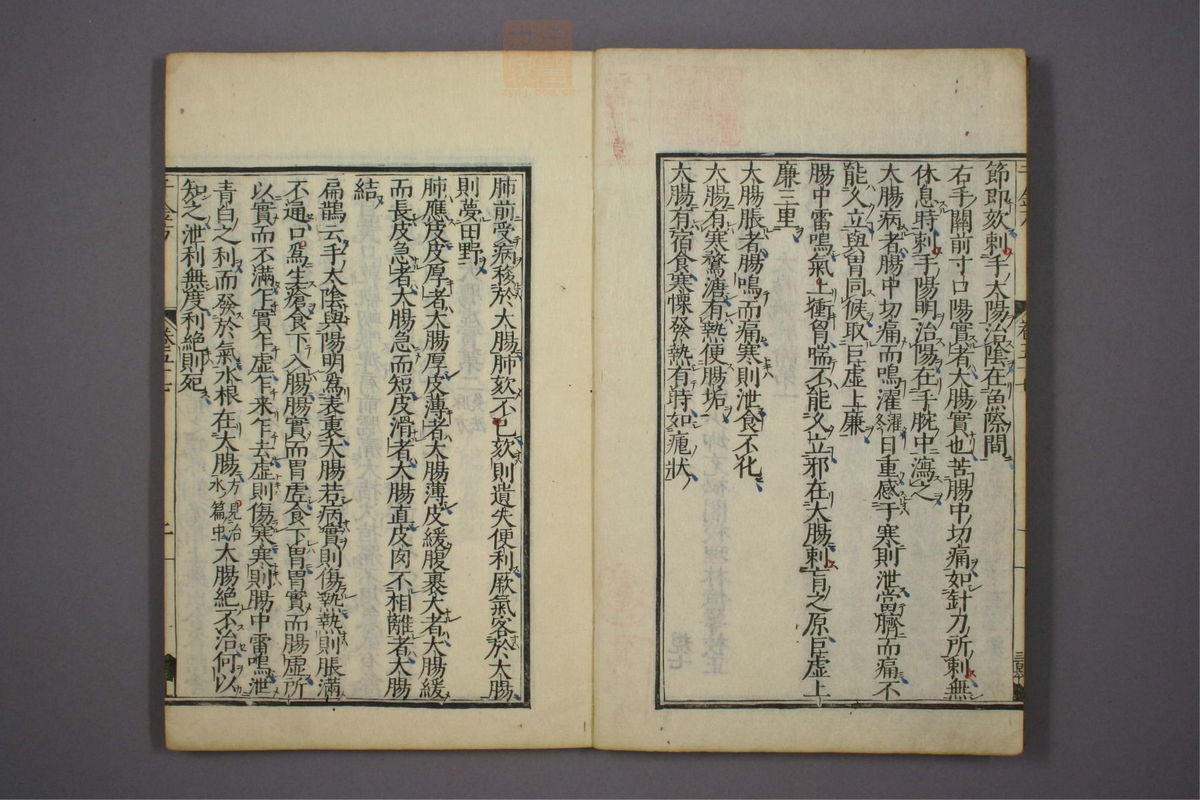 節即欬刺手太陽治陰在魚際間
右手關前寸口陽實者大腸實也苦腸中切痛如針刀所刺無
休息時刺手陽明治陽在手腕中瀉之
大腸病者腸中切痛而鳴濯濯冬日重感于寒則泄當臍而痛不
能久立與胃同候取巨虚上廉
腸中雷鳴氣上衝胷喘不能久立邪在大腸刺肓之原巨虚上
廉三里
大腸脹者腸鳴而痛寒則泄食不化
大腸有寒鶩溏有熱便腸垢
大腸有宿食寒慄發熱有時如瘧狀
肺前受病移於大腸肺欬不已欬則遺失便利厥氣客於大腸
則夢田野
肺應皮皮厚者大腸厚皮薄者大腸薄皮緩腹裹大者大腸緩
而長皮急者大腸急而短皮滑者大腸直皮肉不相離者大腸
結
扁鵲云手太陰與陽明爲表裏大腸若病實則傷熱熱則脹滿
不通口爲生瘡食下入腸腸實而胃虚食下胃胃實而腸虚所
以實而不滿乍實乍虚乍来乍去虚則傷寒寒則腸中雷鳴泄
青白之利而發於氣水根在大腸方見治水篇虫大腸絶不治何以
知之泄利無度利絶則死